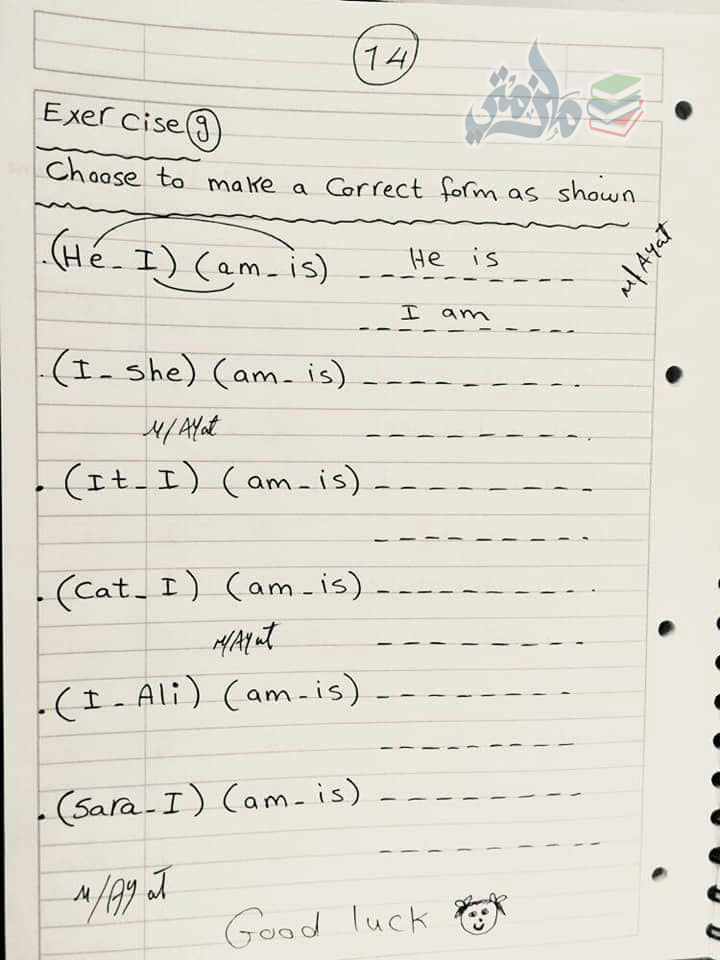 14
ملزمتي
Exercise 9
Choose to make a Correct form as shown
.(He_I) (am_is) --------- He is
M/Ayat
--------- I am
.(I_she) (am_is) ---------
M/AYat ---------
. (It_I) (am_is) ---------
---------
. (Cat_I) (am_is) ---------
M/AYat ---------
. (I_Ali) (am_is) ---------
---------
. (Sara_I) (am_is) ---------
---------
M/AYat
Good luck